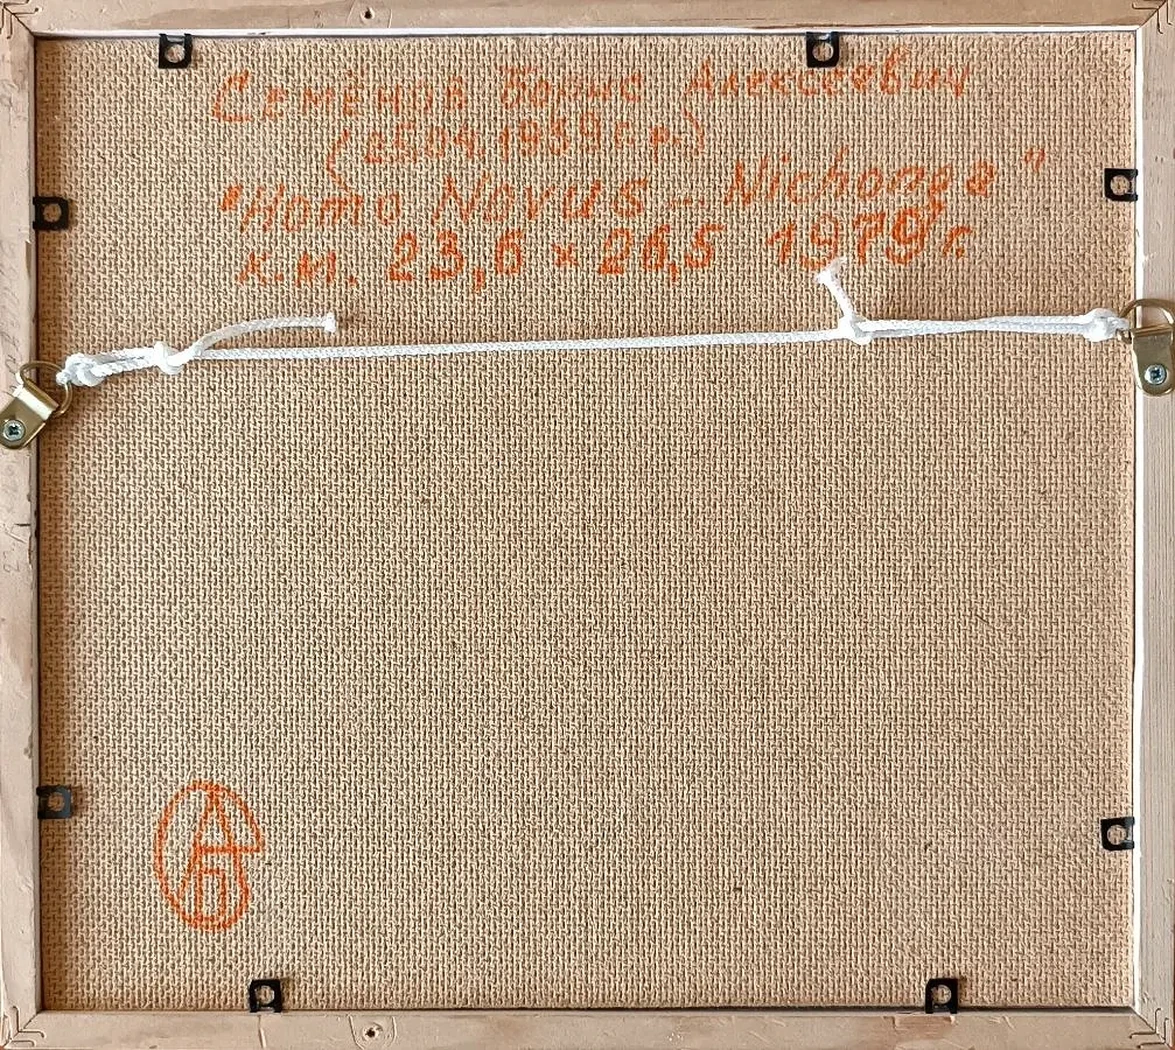 Семёнов Борис Алексеевич
(25.04.1939г.р.)
"Homo Novus - Nichongo"
к.м. 23,6 x 26,5 1979г.